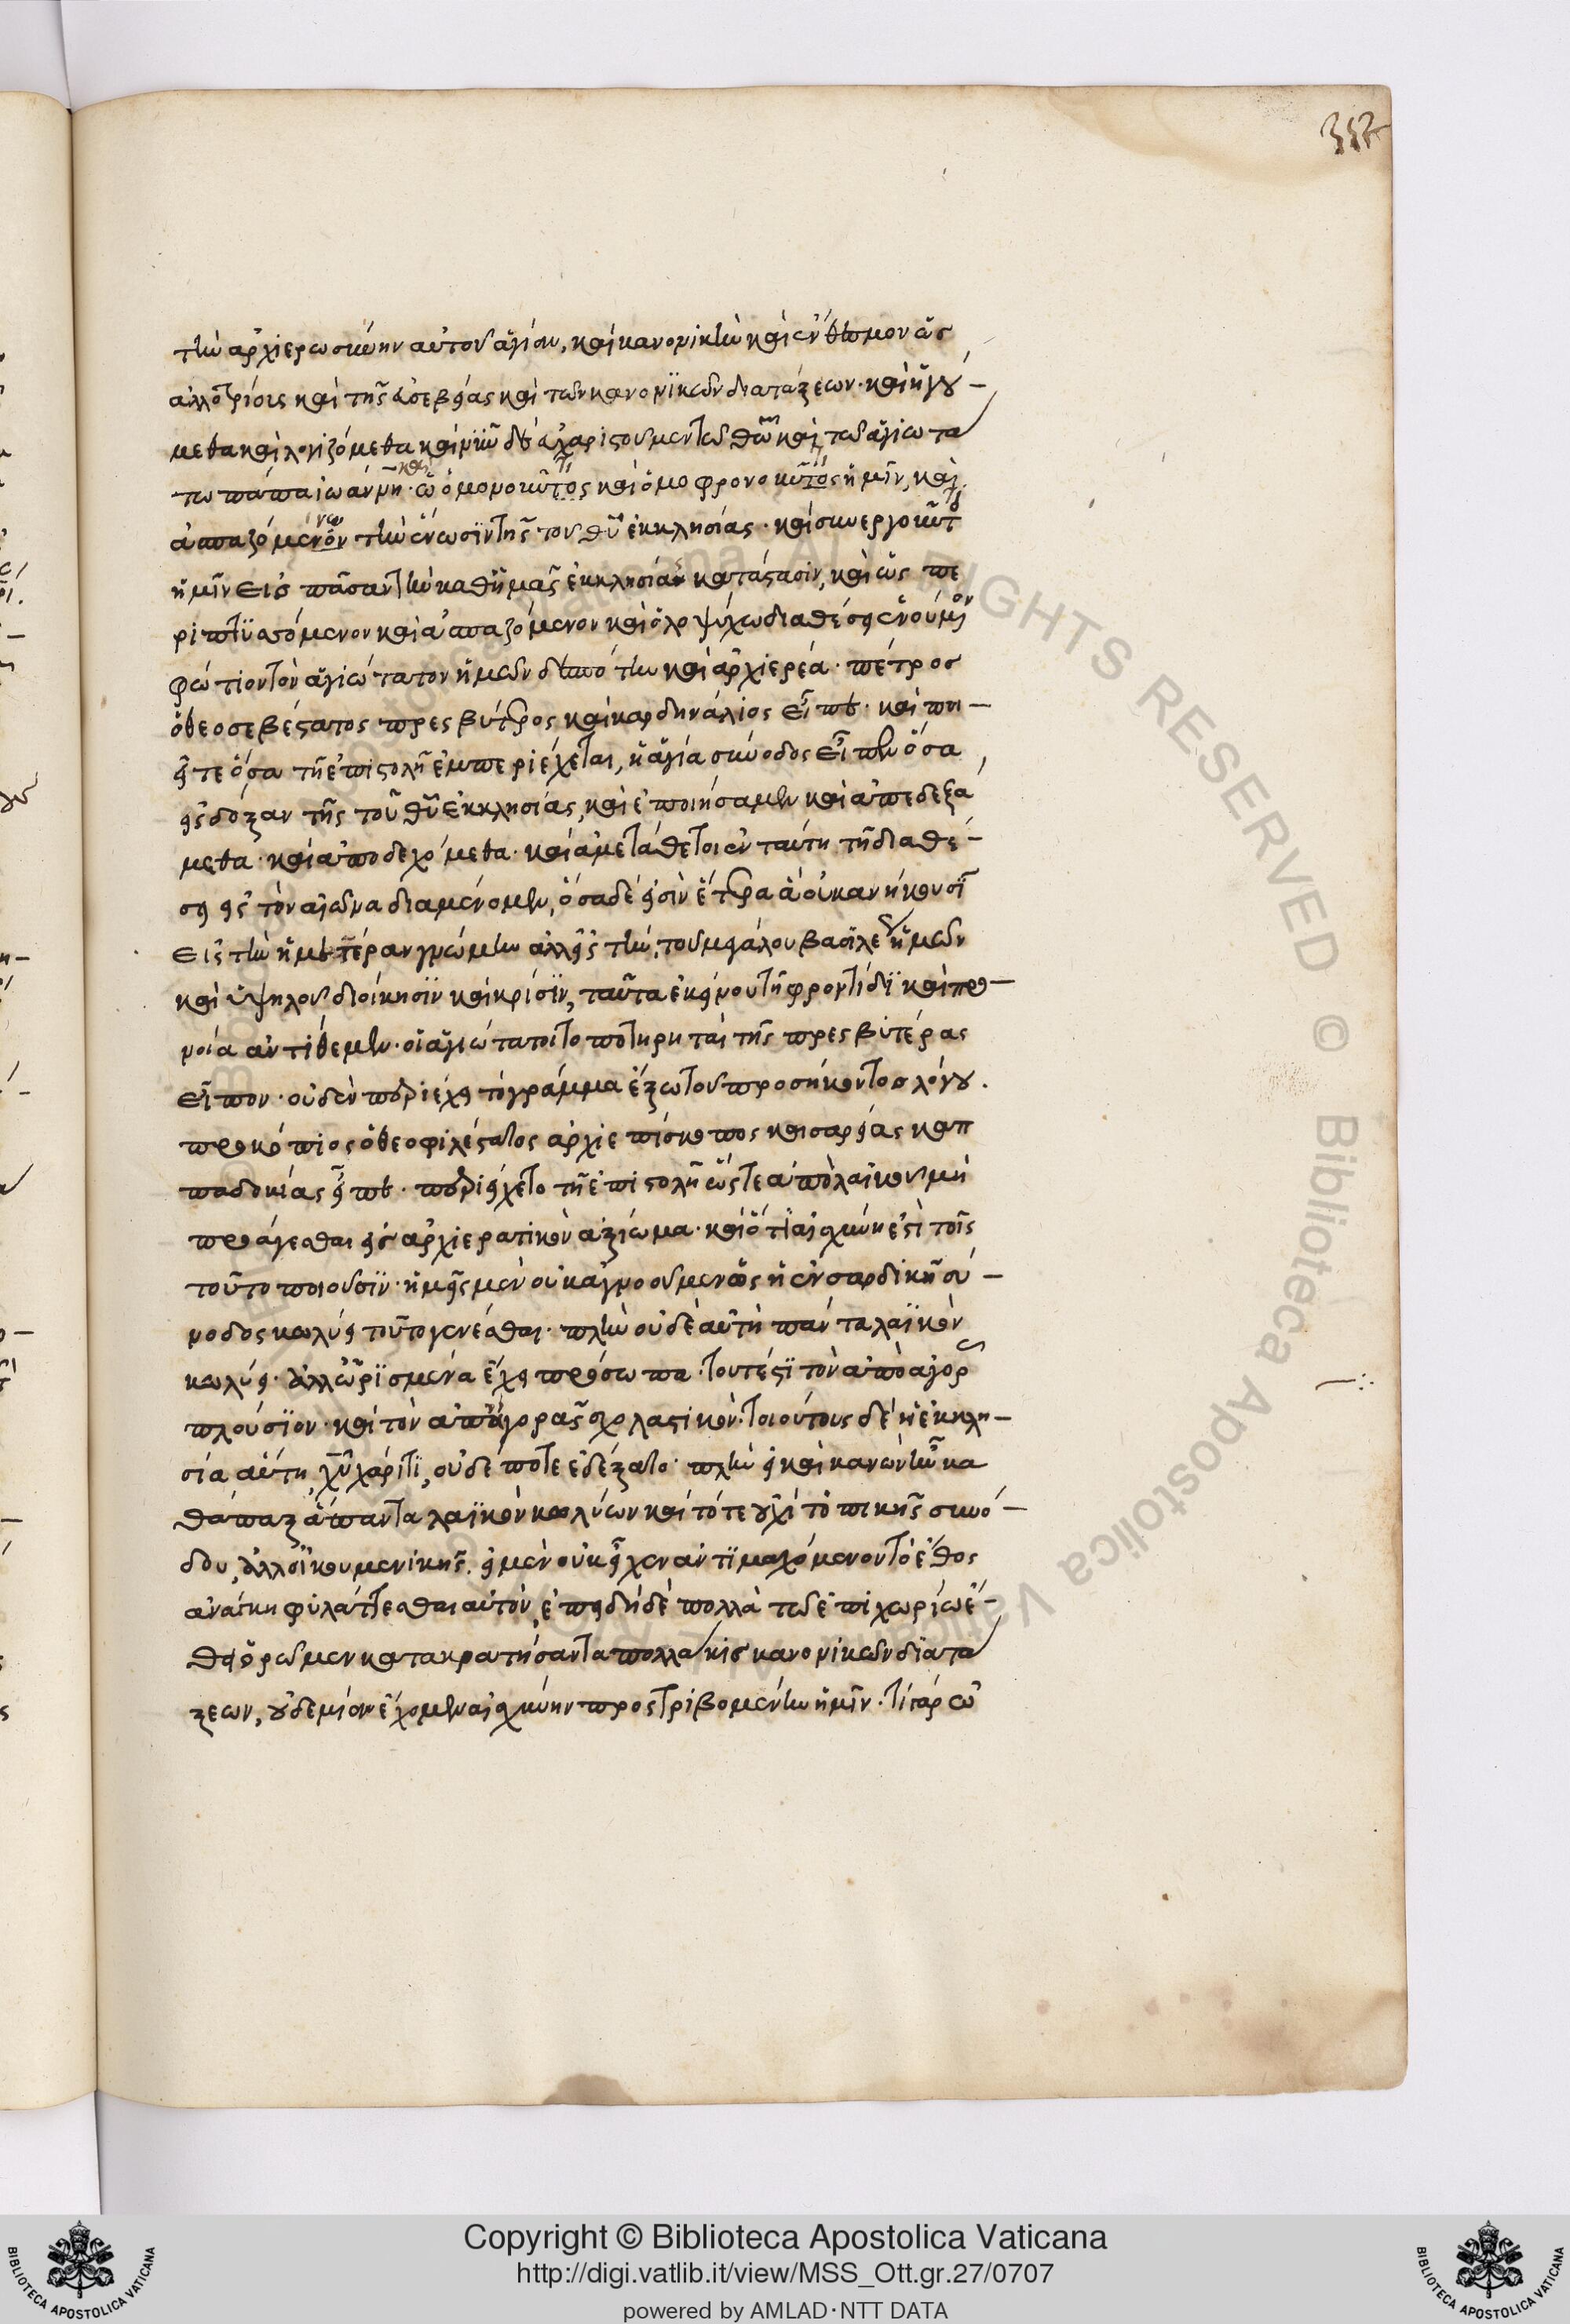 352
τὴν ἀρχιερωσύνην αὐτοῦ ἁγίαν, καὶ κανονικὴν καὶ ἔνθεσμον ὡς
ἀλλοτρίοις καὶ τῆς εὐσεβείας καὶ τῶν κανονικῶν διατάξεων· καὶ ἡγού-
μεθα καὶ λογιζόμεθα καὶ νῦν δὲ εὐχαριστοῦμεν τῷ θεῷ καὶ τῷ ἁγιωτά
τῳ πάπᾳ ἰωάννῃ· καὶ ὡς ὁμονοοῦντος καὶ ὁμοφρονοῦντος ἡμῖν, καὶ
ἀσπαζόμενον τὴν ἕνωσιν τῆς τοῦ θεοῦ ἐκκλησίας· καὶ συνεργοῦντος
ἡμῖν εἰς πᾶσαν τὴν καθ' ἡμᾶς ἐκκλησίαν κατάστασιν, καὶ ὡς πε
ριπτυσσόμενον καὶ ἀσπαζόμενον καὶ ὁλοψύχῳ διαθέσει ἑνούμενον
φώτιον τὸν ἁγιώτατον ἡμῶν δεσπότην καὶ ἀρχιερέα· πέτρος
ὁ θεοσεβέστατος πρεσβύτερος καὶ καρδηνάλιος εἶπε· καὶ ποι-
εῖτε ὅσα τῇ ἐπιστολῇ ἐμπεριέχεται, ἡ ἁγία σύνοδος εἶπεν ὅσα
εἰς δόξαν τῆς τοῦ θεοῦ ἐκκλησίας, καὶ ἐποιήσαμεν καὶ ἀπεδεξά
μεθα· καὶ ἀποδεχόμεθα· καὶ ἀμετάθετοι ἐν ταύτῃ τῇ διαθέ-
σει εἰς τὸν αἰῶνα διαμένομεν, ὅσα δέ εἰσιν ἕτερα ἃ οὐκ ἀνήκουσι
εἰς τὴν ἡμετέραν γνώμην ἀλλ' εἰς τὴν τοῦ μεγάλου βασιλέως ἡμῶν
καὶ ὑψηλοῦ διοίκησιν καὶ κρίσιν, ταῦτα ἐκείνου τῇ φροντίδι καὶ προ-
νοίᾳ ἀντίθεμεν· οἱ ἁγιώτατοι τοποτηρηταὶ τῆς πρεσβυτέρας
εἶπον· οὐδὲν περιέχει τὸ γράμμα ἔξω τοῦ προσήκοντος λόγου.
προκόπιος ὁ θεοφιλέστατος ἀρχιεπίσκοπος καισαρείας καπ
παδοκίας εἶπε· περιείχετο τῇ ἐπιστολῇ ὥστε ἀπὸ λαϊκοῦ μὴ
προάγεσθαι εἰς ἀρχιερατικὸν ἀξίωμα· καὶ ὅτι αἰσχύνη ἐστὶ τοῖς
τοῦτο ποιοῦσιν· ἡμεῖς μὲν οὐκ ἀγνοοῦμεν ὡς ἡ ἐν σαρδικῇ σύ-
νοδος κωλύει τοῦτο γενέσθαι· πλὴν οὐδὲ αὐτὴ πάντα λαϊκὸν
κωλύει· ἀλλ' ὡρισμένα ἔχει πρόσωπα· τουτέστι τὸν ἀπὸ ἀγορᾶς
πλούσιον· καὶ τὸν ἀπὸ ἀγορᾶς σχολαστικόν· τοιούτους δὲ ἡ ἐκκλη-
σία αὕτη χριστοῦ χάριτι, οὐδέποτε ἐδέξατο· πλὴν εἰ καὶ κανὼν ἦν κα
θάπαξ ἅπαντα λαϊκὸν κωλύων καὶ τότε οὐχὶ τοπικῆς συνό-
δου, ἀλλ' οἰκουμενικῆς. εἰ μὲν οὐκ εἶχεν ἀντιμαχόμενον τὸ ἔθος
ἀνάγκη φυλάττεσθαι αὐτόν, ἐπειδὴ δὲ πολλὰ τῷ ἐπιχωρίῳ ἔ-
θει ὁρῶμεν κατακρατήσαντα πολλάκις κανονικῶν διατά
ξεων, οὐδεμίαν ἔχομεν αἰσχύνην προστριβομένην ἡμῖν· τί γὰρ ὡ
Copyright © Biblioteca Apostolica Vaticana
http://digi.vatlib.it/view/MSS_Ott.gr.27/0707
powered by AMLAD·NTT DATA
BIBLIOTECA APOSTOLICA VATICANA
BIBLIOTECA APOSTOLICA VATICANA